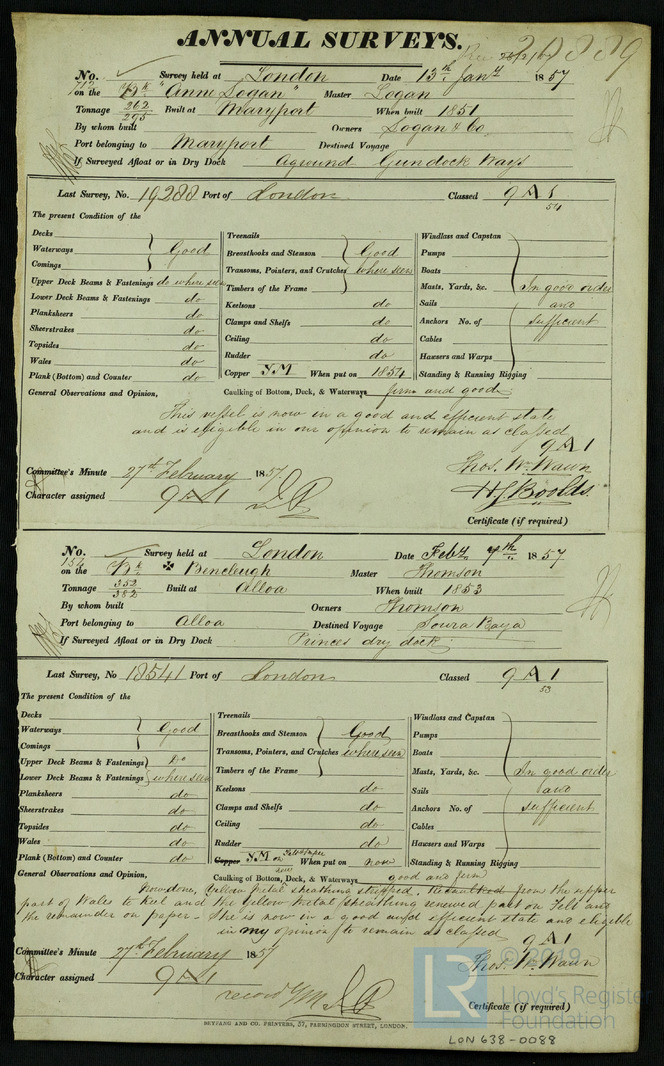 ANNUAL SURVEYS.
20889
No. 712 Survey held at London Date 13th Jany 1857
on the Bk "Anne Logan" Master Logan
Tonnage 262/295 Built at Maryport When built 1851
By whom built Owners Logan & Co
Port belonging to Maryport Destined Voyage
If Surveyed Afloat or in Dry Dock Aground Gundock Ways
Last Survey, No. 19288 Port of London Classed 9 A 1
54
The present Condition of the
Decks
Waterways
Comings
Good
Upper Deck Beams & Fastenings do where seen
Lower Deck Beams & Fastenings do
Planksheers do
Sheerstrakes do
Topsides do
Wales do
Plank (Bottom) and Counter do
Treenails
Breasthooks and Stemson
Transoms, Pointers, and Crutches
Timbers of the Frame
Good
where seen
Keelsons do
Clamps and Shelfs do
Ceiling do
Rudder do
Copper Y.M. When put on 1854
Windlass and Capstan
Pumps
Boats
Masts, Yards, &c.
In good order
Sails and
Anchors No. of sufficient
Cables
Hawsers and Warps
Standing & Running Rigging
General Observations and Opinion, Caulking of Bottom, Deck, & Waterways firm and good
This vessel is now in a good and efficient state
and is eligible in our opinion to remain as classed
9 A 1
Thos. Wm. Wawn
H J Boolds.
Committee's Minute 27th February 1857.
Character assigned 9 A 1
Certificate (if required)
No. 154 Survey held at London Date Feby 7th 1857
on the Bk Bencleugh Master Thomson
Tonnage 352/382 Built at Alloa When built 1853
By whom built Owners Thomson
Port belonging to Alloa Destined Voyage Soura Baya
If Surveyed Afloat or in Dry Dock Princes dry dock
Last Survey, No 18541 Port of London Classed 9 A 1
53
The present Condition of the
Decks
Waterways
Comings
Good
Upper Deck Beams & Fastenings Do
Lower Deck Beams & Fastenings where seen
Planksheers do
Sheerstrakes do
Topsides do
Wales do
Plank (Bottom) and Counter do
Treenails
Breasthooks and Stemson
Transoms, Pointers, and Crutches
Timbers of the Frame
Good
where seen
Keelsons do
Clamps and Shelfs do
Ceiling do
Rudder do
Copper Y.M. on Felt & Paper When put on now
Windlass and Capstan
Pumps
Boats
Masts, Yards, &c.
In good order
Sails and
Anchors No. of sufficient
Cables
Hawsers and Warps
Standing & Running Rigging
General Observations and Opinion, Caulking of Bottom, Deck, & Waterways good and firm
Now done, Yellow Metal sheathing stripped, Recaulked from the upper
part of Wales to Keel and the Yellow Metal sheathing renewed part on Felt and
the remainder on paper - She is now in a good and efficient state and eligible
in my opinion to remain as classed
9 A 1
Thos. Wm. Wawn
Committee's Minute 27th February 1857
Character assigned 9 A 1
record YM
Certificate (if required)
SEYFANG AND CO. PRINTERS, 57, FARRINGDON STREET, LONDON.
LR
© 2019
Lloyd's Register
Foundation
LON 638-0088